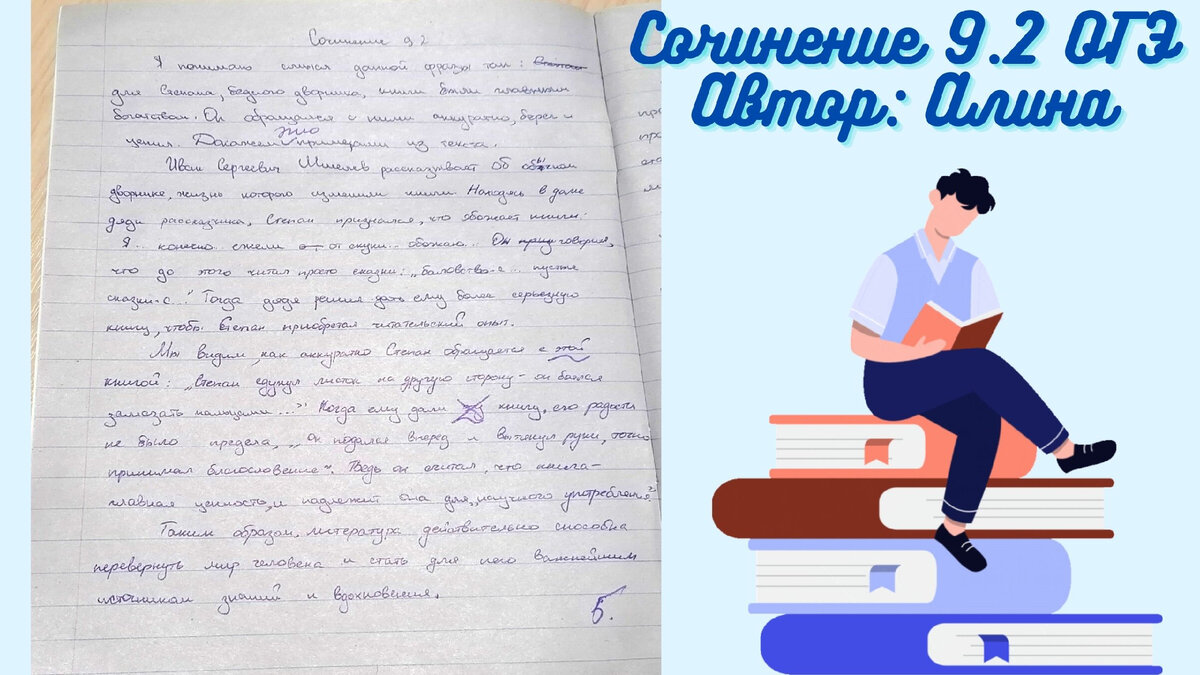 Сочинение 9.2
Я понимаю смысл данной фразы так:
для Степана, бедного дворника, книги были главным
богатством. Он обращался с ними аккуратно, берег и
ценил. Докажем это примерами из текста.
Иван Сергеевич Шмелев рассказывает об обычном
дворнике, жизнь которого изменили книги. Находясь в доме
дяди рассказчика, Степан признался, что обожает книги:
Я... конечно... ежели от скуки... обожаю... Он говорил,
что до этого читал просто сказки: „Баловство-с... пустые
сказки-с..." Тогда дядя решил дать ему более серьезную
книгу, чтобы Степан приобретал читательский опыт.
Мы видим, как аккуратно Степан обращается с этой
книгой: „Степан сдунул листок на другую сторону - он боялся
замазать пальцами..." Когда ему дали книгу, его радости
не было предела, „Он подался вперед и вытянул руки, точно
принимал благословение". Ведь он считал, что книга-
главная ценность, и надлежит она для „научного употребления"
Таким образом, литература действительно способна
перевернуть мир человека и стать для него важнейшим
источником знаний и вдохновения.
5.
Сочинение 9.2 ОГЭ
Автор: Алина